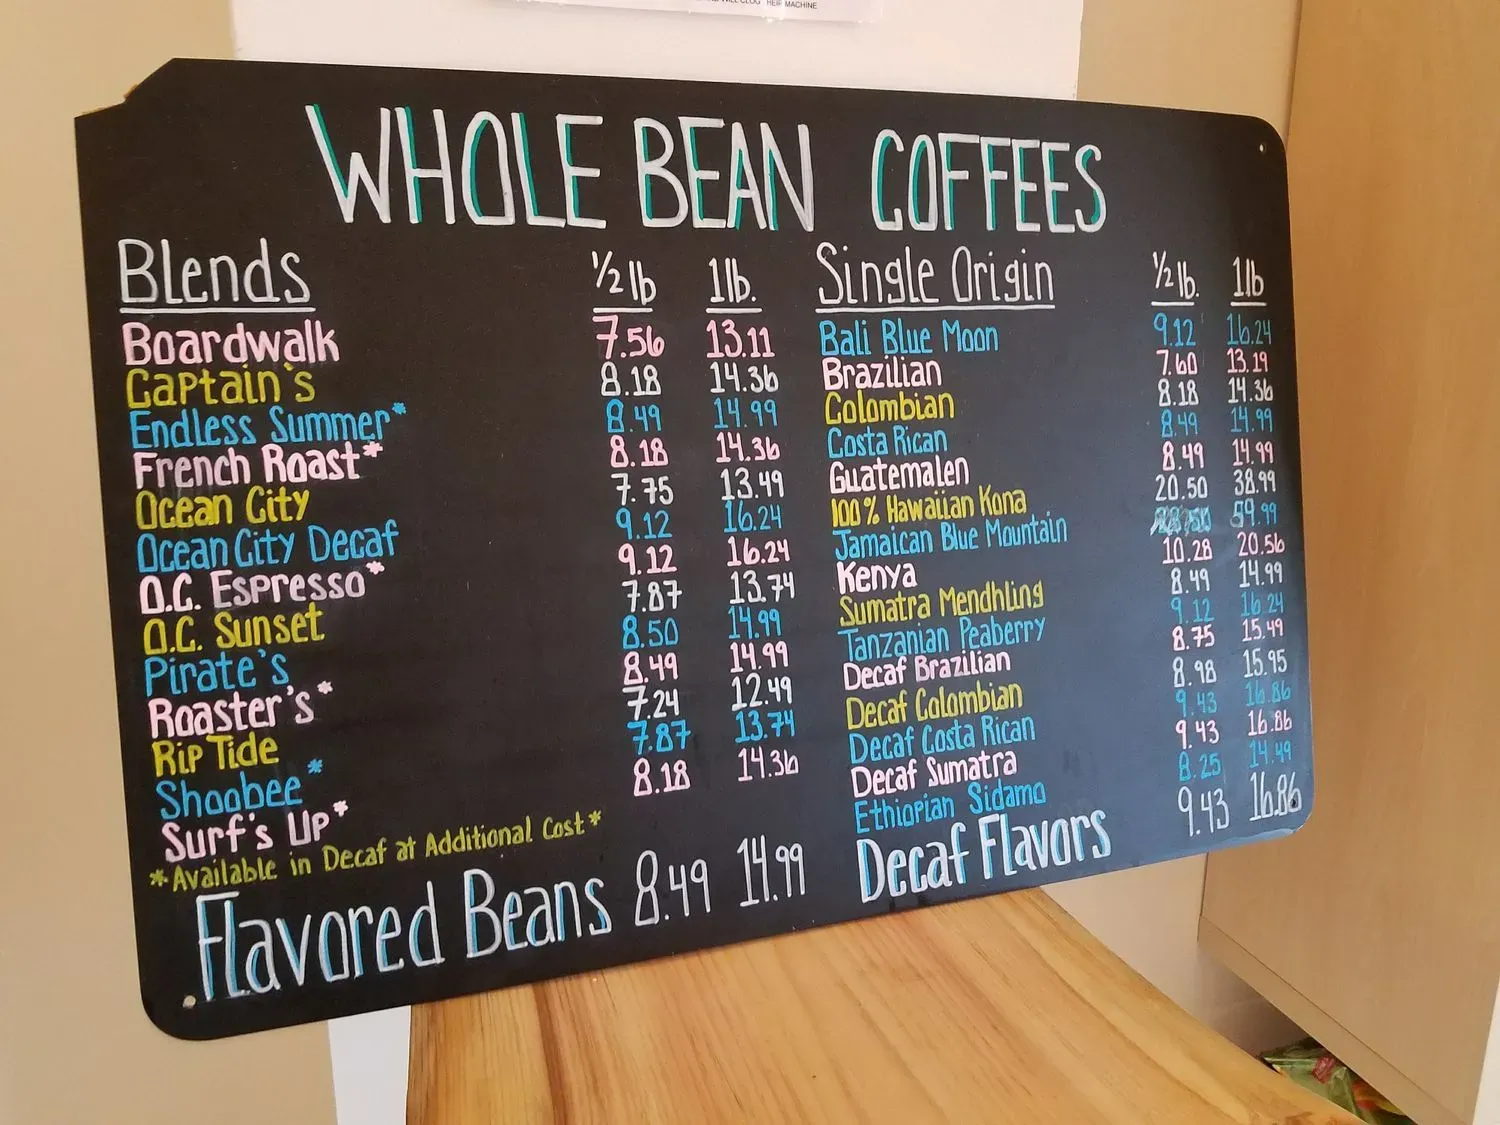 MACHINE
WHOLE BEAN COFFEES
Blends ½ lb 1 lb.
Boardwalk 7.56 13.11
Captain's 8.18 14.36
Endless Summer* 8.49 14.99
French Roast* 8.18 14.36
Ocean City 7.75 13.49
Ocean City Decaf 9.12 16.24
O.C. Espresso* 9.12 16.24
O.C. Sunset 7.87 13.74
Pirate's 8.50 14.99
Roaster's* 8.49 14.99
Rip Tide 7.24 12.49
Shoobee* 7.87 13.74
Surf's Up* 8.18 14.36
*Available in Decaf at Additional Cost*
Flavored Beans 8.49 14.99
Single Origin ½ lb. 1 lb
Bali Blue Moon 9.12 16.24
Brazilian 7.60 13.19
Colombian 8.18 14.36
Costa Rican 8.49 14.99
Guatemalen 8.49 14.99
100% Hawaiian Kona 20.50 38.99
Jamaican Blue Mountain 59.99
Kenya 10.28 20.56
Sumatra Mendhling 8.49 14.99
Tanzanian Peaberry 9.12 16.24
Decaf Brazilian 8.75 15.49
Decaf Colombian 8.98 15.95
Decaf Costa Rican 9.43 16.86
Decaf Sumatra 9.43 16.86
Ethiopian Sidamo 8.25 14.49
Decaf Flavors 9.43 16.86